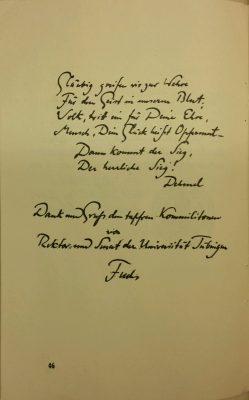 Gläubig greifen wir zur Wehre
Für den Geist in unserem Blut;
Volk, tritt ein für Deine Ehre,
Mensch, Dein Glück heißt Opfermut –
Dann kommt der Sieg,
Der herrliche Sieg!
Dehmel
Dank und Gruß den tapfern Kommilitonen
von
Rektor und Senat der Universität Tübingen
Fuchs
46